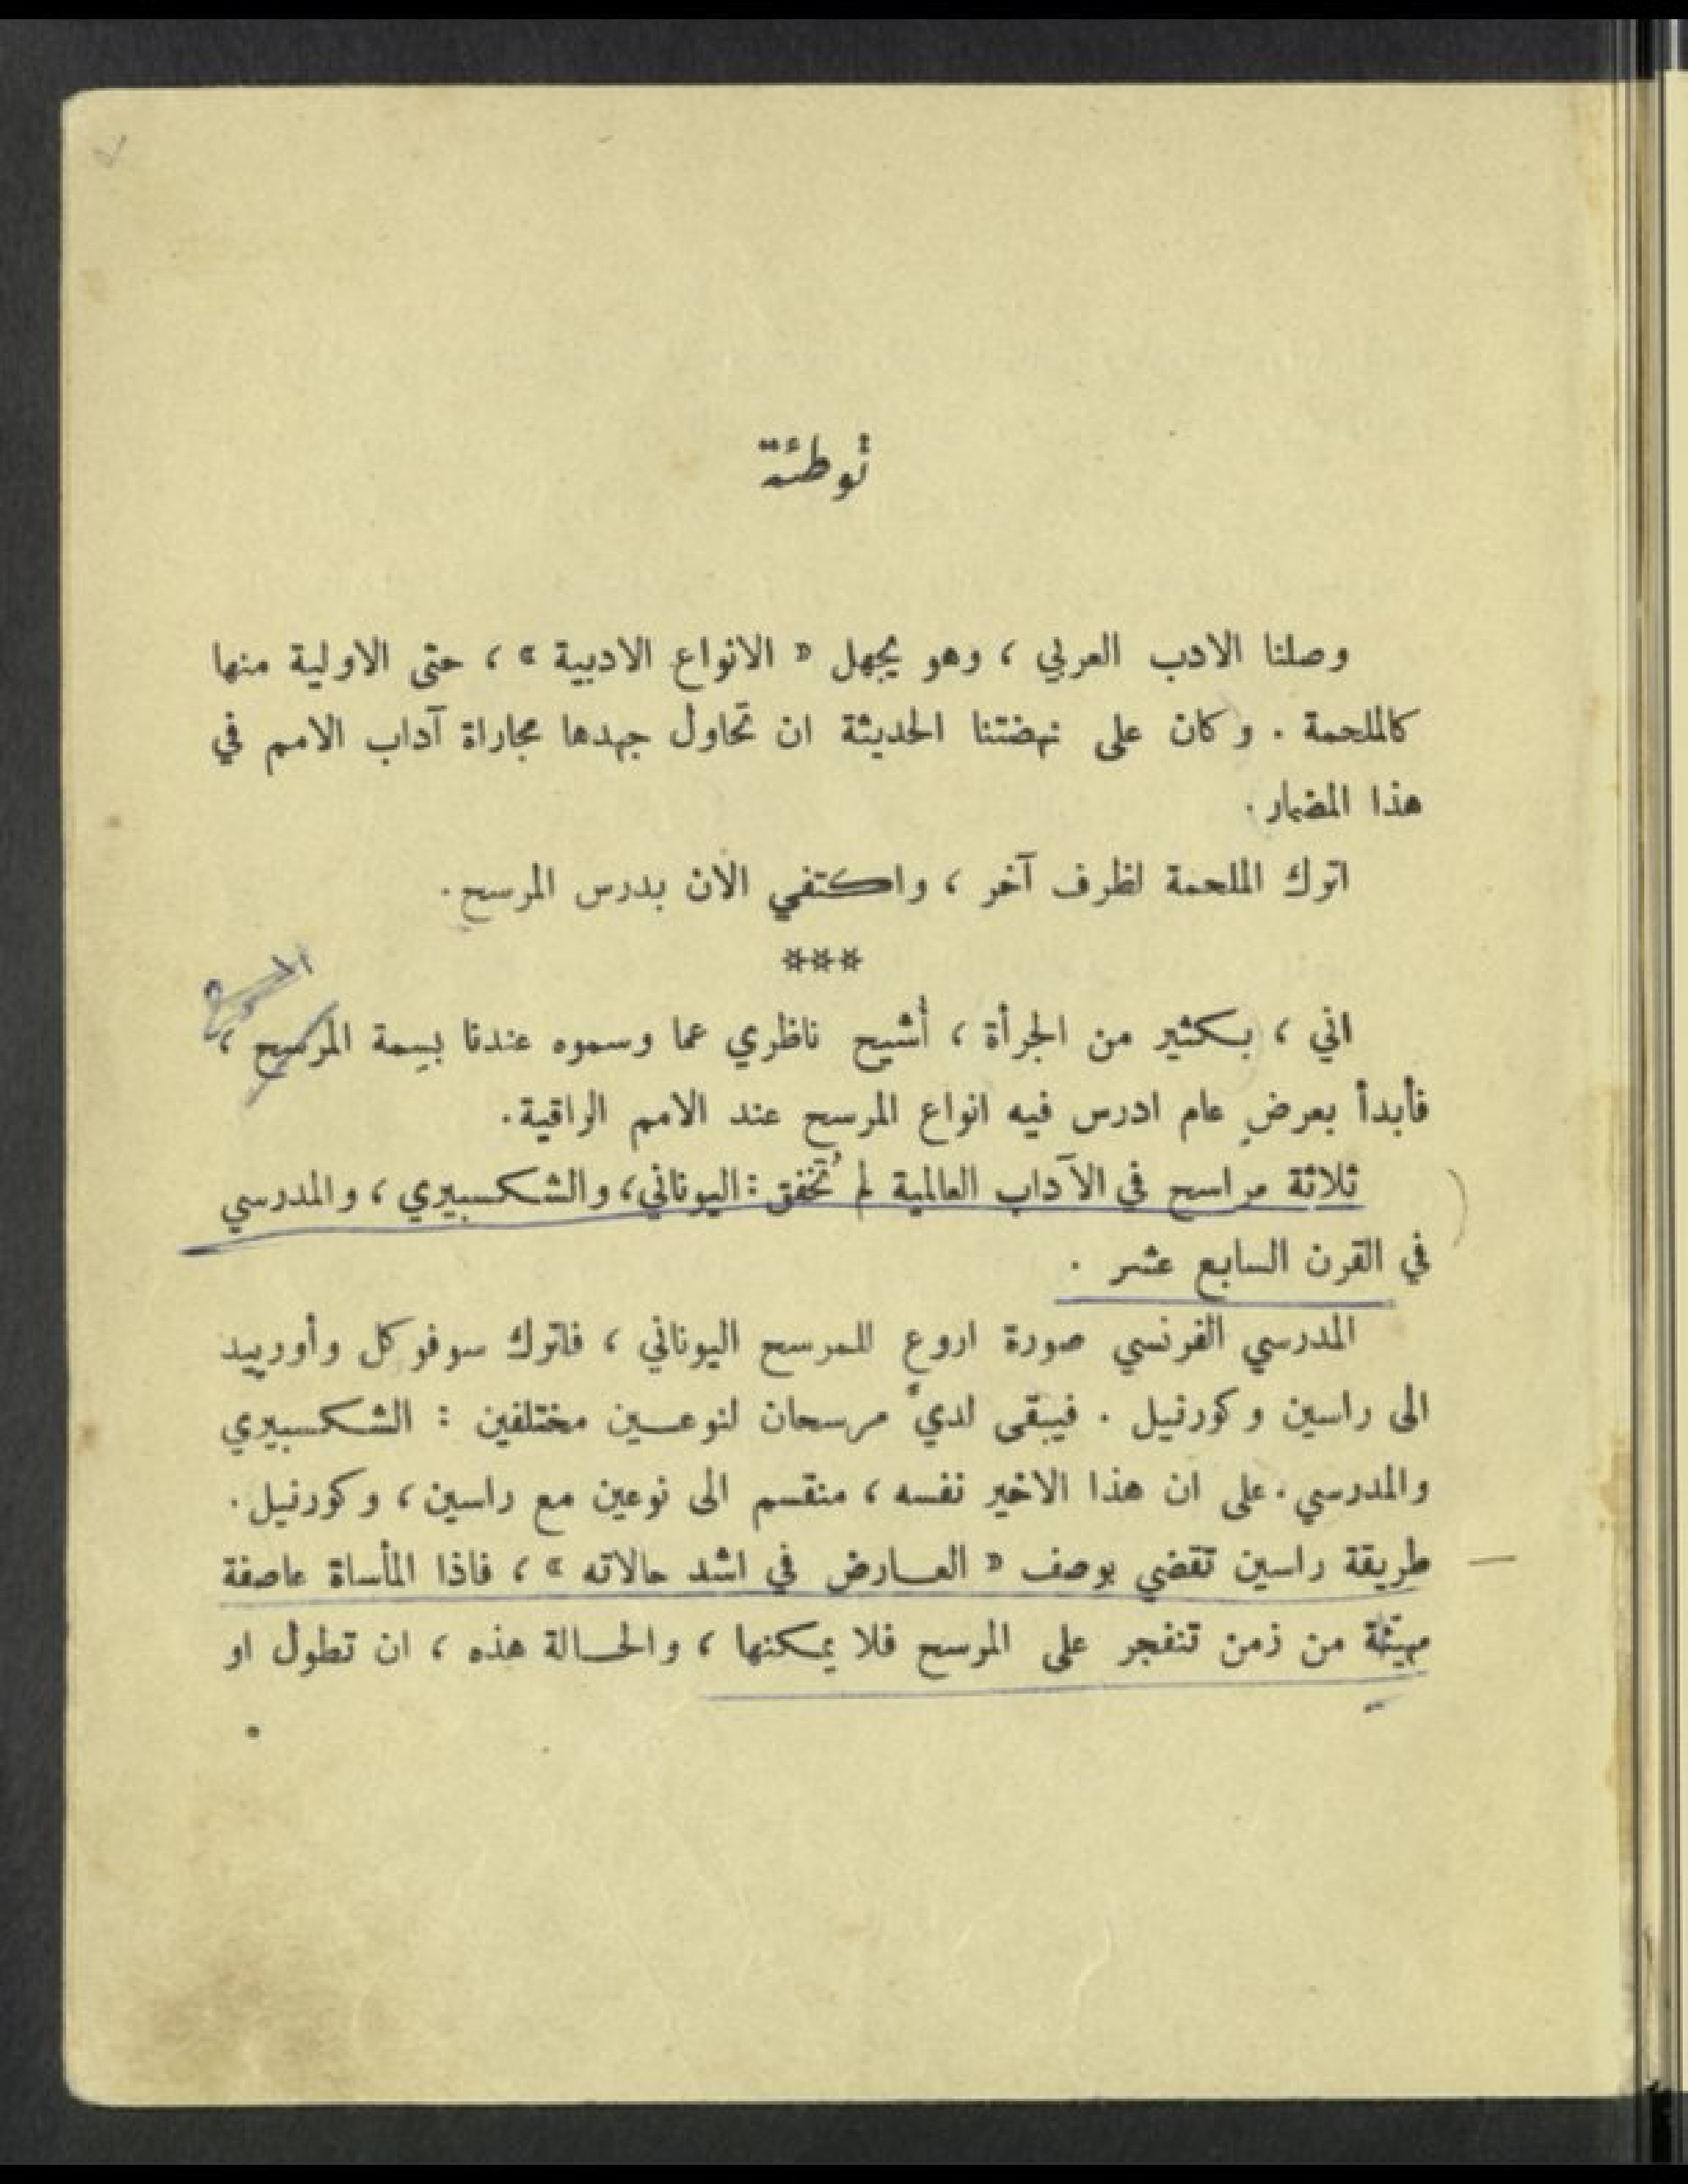 توطئة
وصلنا الادب العربي ، وهو يجهل « الانواع الادبية » ، حتى الاولية منها
كالملحمة . وكان على نهضتنا الحديثة ان تحاول جهدها مجاراة آداب الامم في
هذا المضمار .
اترك الملحمة لظرف آخر ، واكتفي الآن بدرس المرسح .
***
اني ، بكثير من الجرأة ، أُشيح ناظري عما وسموه عندنا بسِمة المرسح ،
فأبدأ بعرضٍ عام ادرس فيه انواع المرسح عند الامم الراقية .
ثلاثة مراسح في الآداب العالمية لم تُخفق : اليوناني ، والشكسبيري ، والمدرسي
في القرن السابع عشر .
المدرسي الفرنسي صورة اروع للمرسح اليوناني ، فاترك سوفوكل وأوريبيد
الى راسين وكورنيل . فيبقى لديّ مرسحان لنوعين مختلفين : الشكسبيري
والمدرسي . على ان هذا الاخير نفسه ، منقسم الى نوعين مع راسين ، وكورنيل .
طريقة راسين تقضي بوصف « العارض في اشد حالاته » ، فاذا المأساة عاصفة
مهيّئة من زمن تنفجر على المرسح فلا يمكنها ، والحالة هذه ، ان تطول او